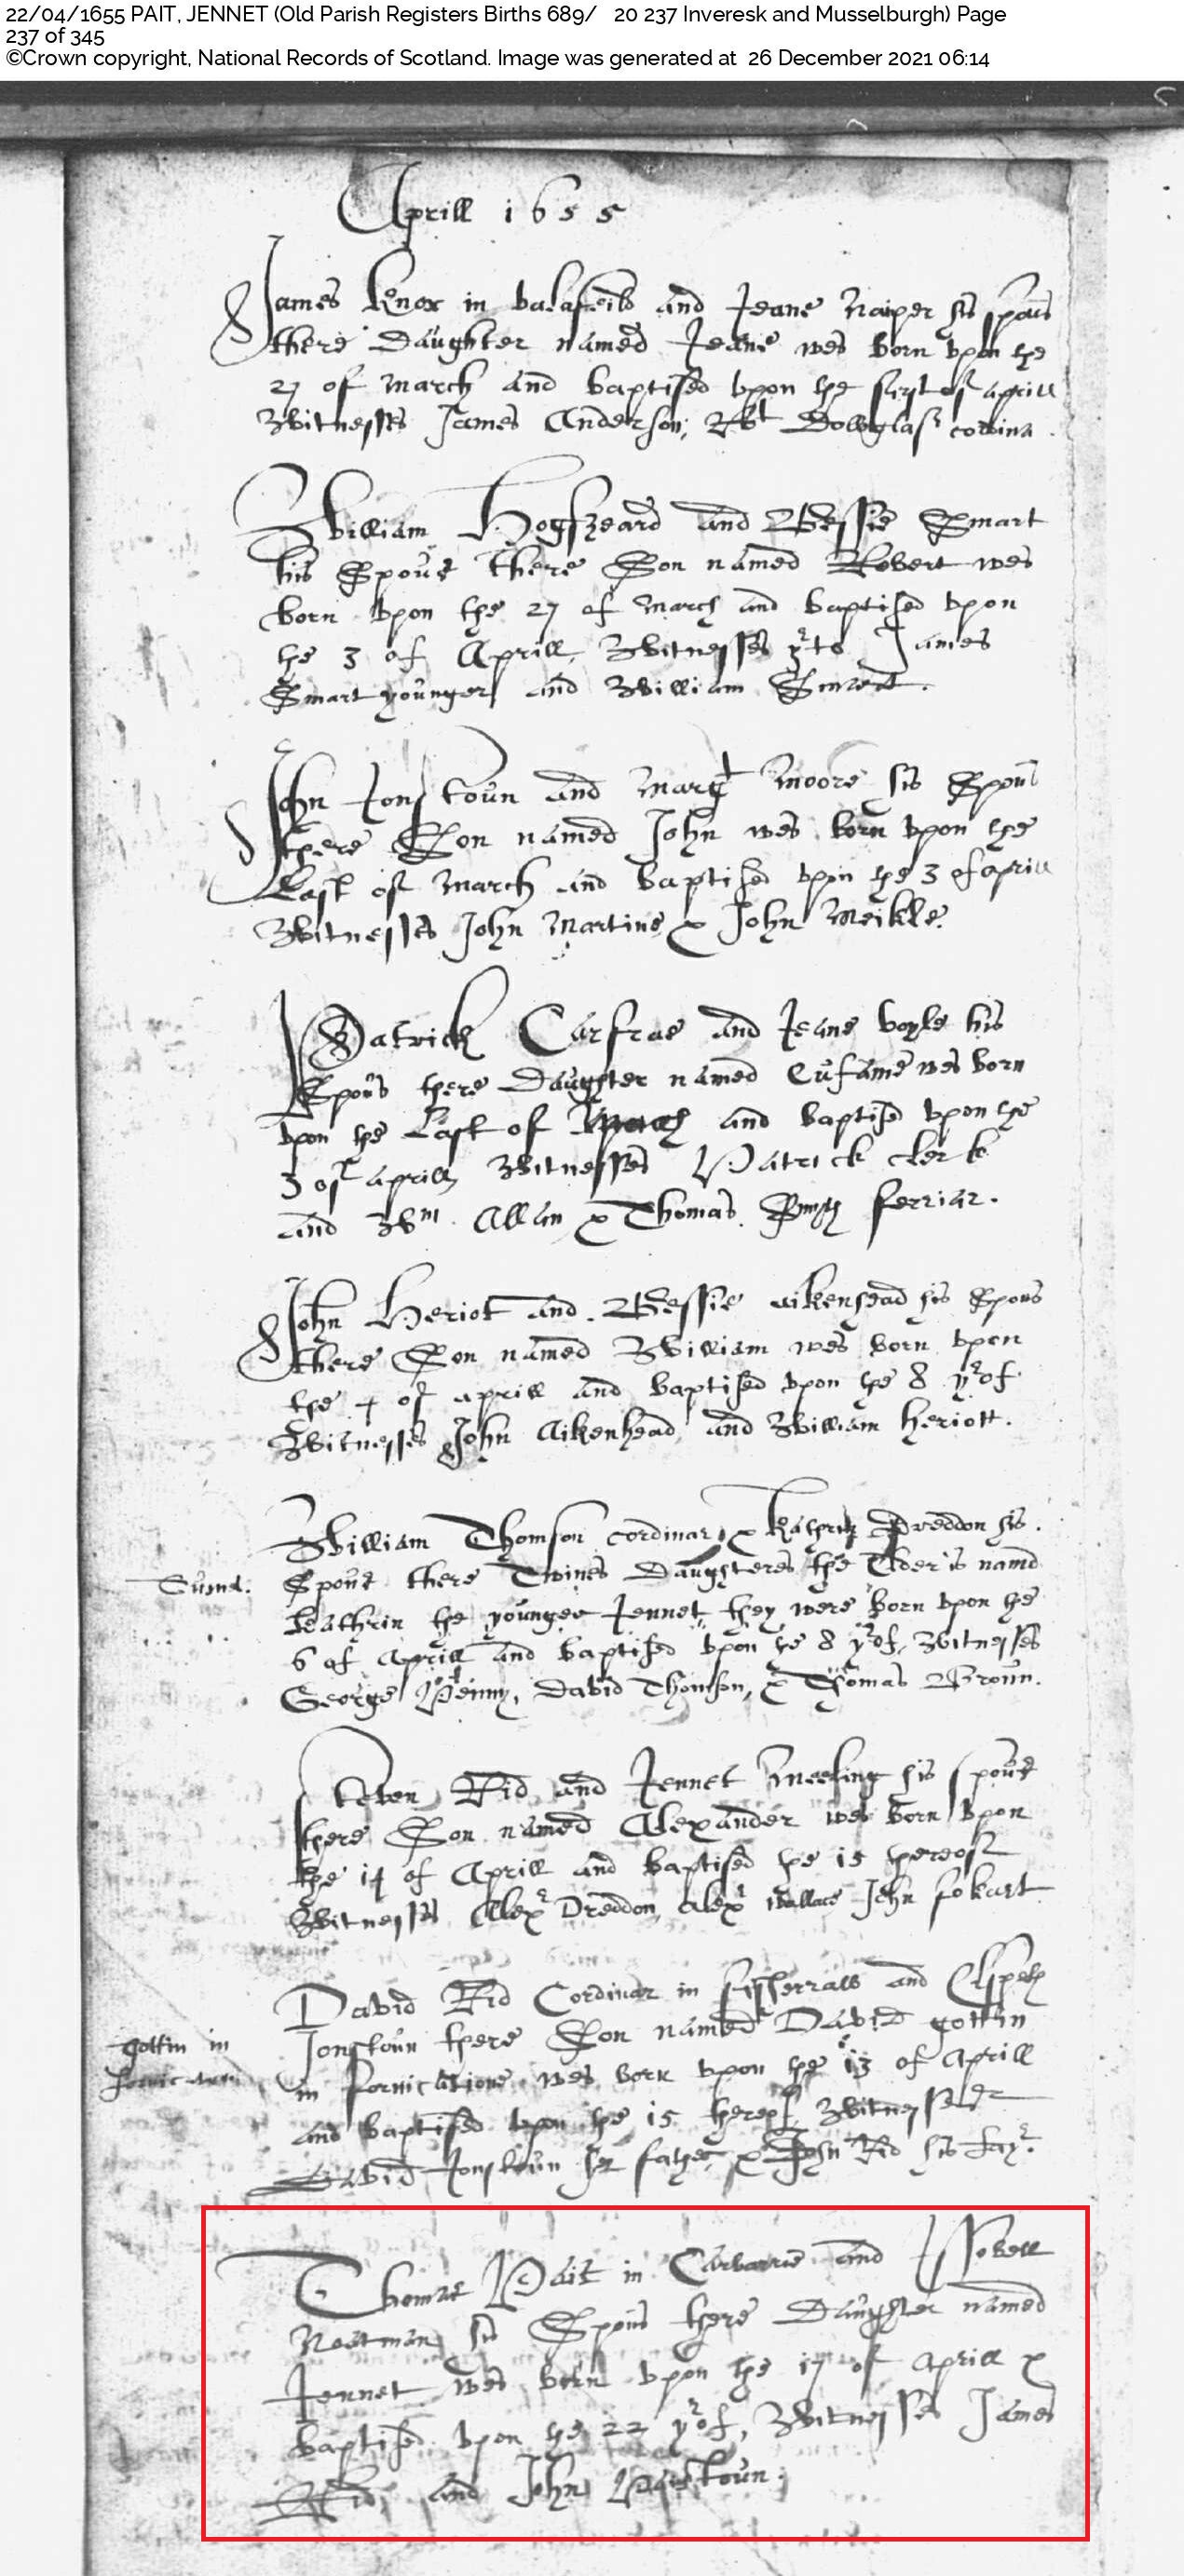 22/04/1655 PAIT, JENNET (Old Parish Registers Births 689/ 20 237 Inveresk and Musselburgh) Page
237 of 345
©Crown copyright, National Records of Scotland. Image was generated at 26 December 2021 06:14
Aprill 1655
James Knox in and Jeane Naiper his spous
there Daughter named Jeane wes born vpon the
27 of March and baptised vpon the first of aprill
Witnesses James Anderson, Rbt Dowglas
William Hogszeard and Bessie Smart
his Spous there Son named Robert wes
born vpon the 27 of March and baptised vpon
the 3 of Aprill, Witnesses yrto James
Smart younger and William
John Jonstoun and Margt Moore his Spous
there Son named John wes born vpon the
Last of March and baptised vpon the 3 of aprill
Witnesses John Martine & John Meikle.
Patrick Carfrae and Jeane voyle his
Spous there Daughter named Eufame wes born
vpon the Last of March and baptised vpon the
3 of aprill, Witnesses Patrick clerk
and Wm Allan & Thomas Smith ferriar.
John Heriot and Bessie aikenhead his Spous
there Son named William wes born vpon
the 4 of aprill and baptised vpon the 8 yrof
Witnesses John Aikenhead and William heriott.
William Thomson cordinar & Kathrin Dreddon his
Spous there Twines Daughteres the Elder is named
Kathrin the younger Jennet, they were born vpon the
6 of Aprill and baptised vpon the 8 yrof, Witnesses
George Penny, David Thomson, & Thomas Broun.
Steven Rid and Jennet his spous
there Son named Alexander wes born vpon
the 14 of Aprill and baptised the 15 thereof
Witnesses Alexr Dreddon, Alexr Wallace John fokart
David Rid Cordinar in fisherraw and Elspeth
Gottin in
Jonstoun there Son named David gottin
fornicatione
in fornicatione wes born vpon the 13 of Aprill
and baptised vpon the 15 thereof, Witnesses
David Jonstoun her father & John Rid his fayr.
Thomas Pait in Carbarrie and Issobell
his Spous there Daughter named
Jennet wes born vpon the 17 of Aprill &
baptised vpon the 22 yrof, Witnesses James
Rid, and John